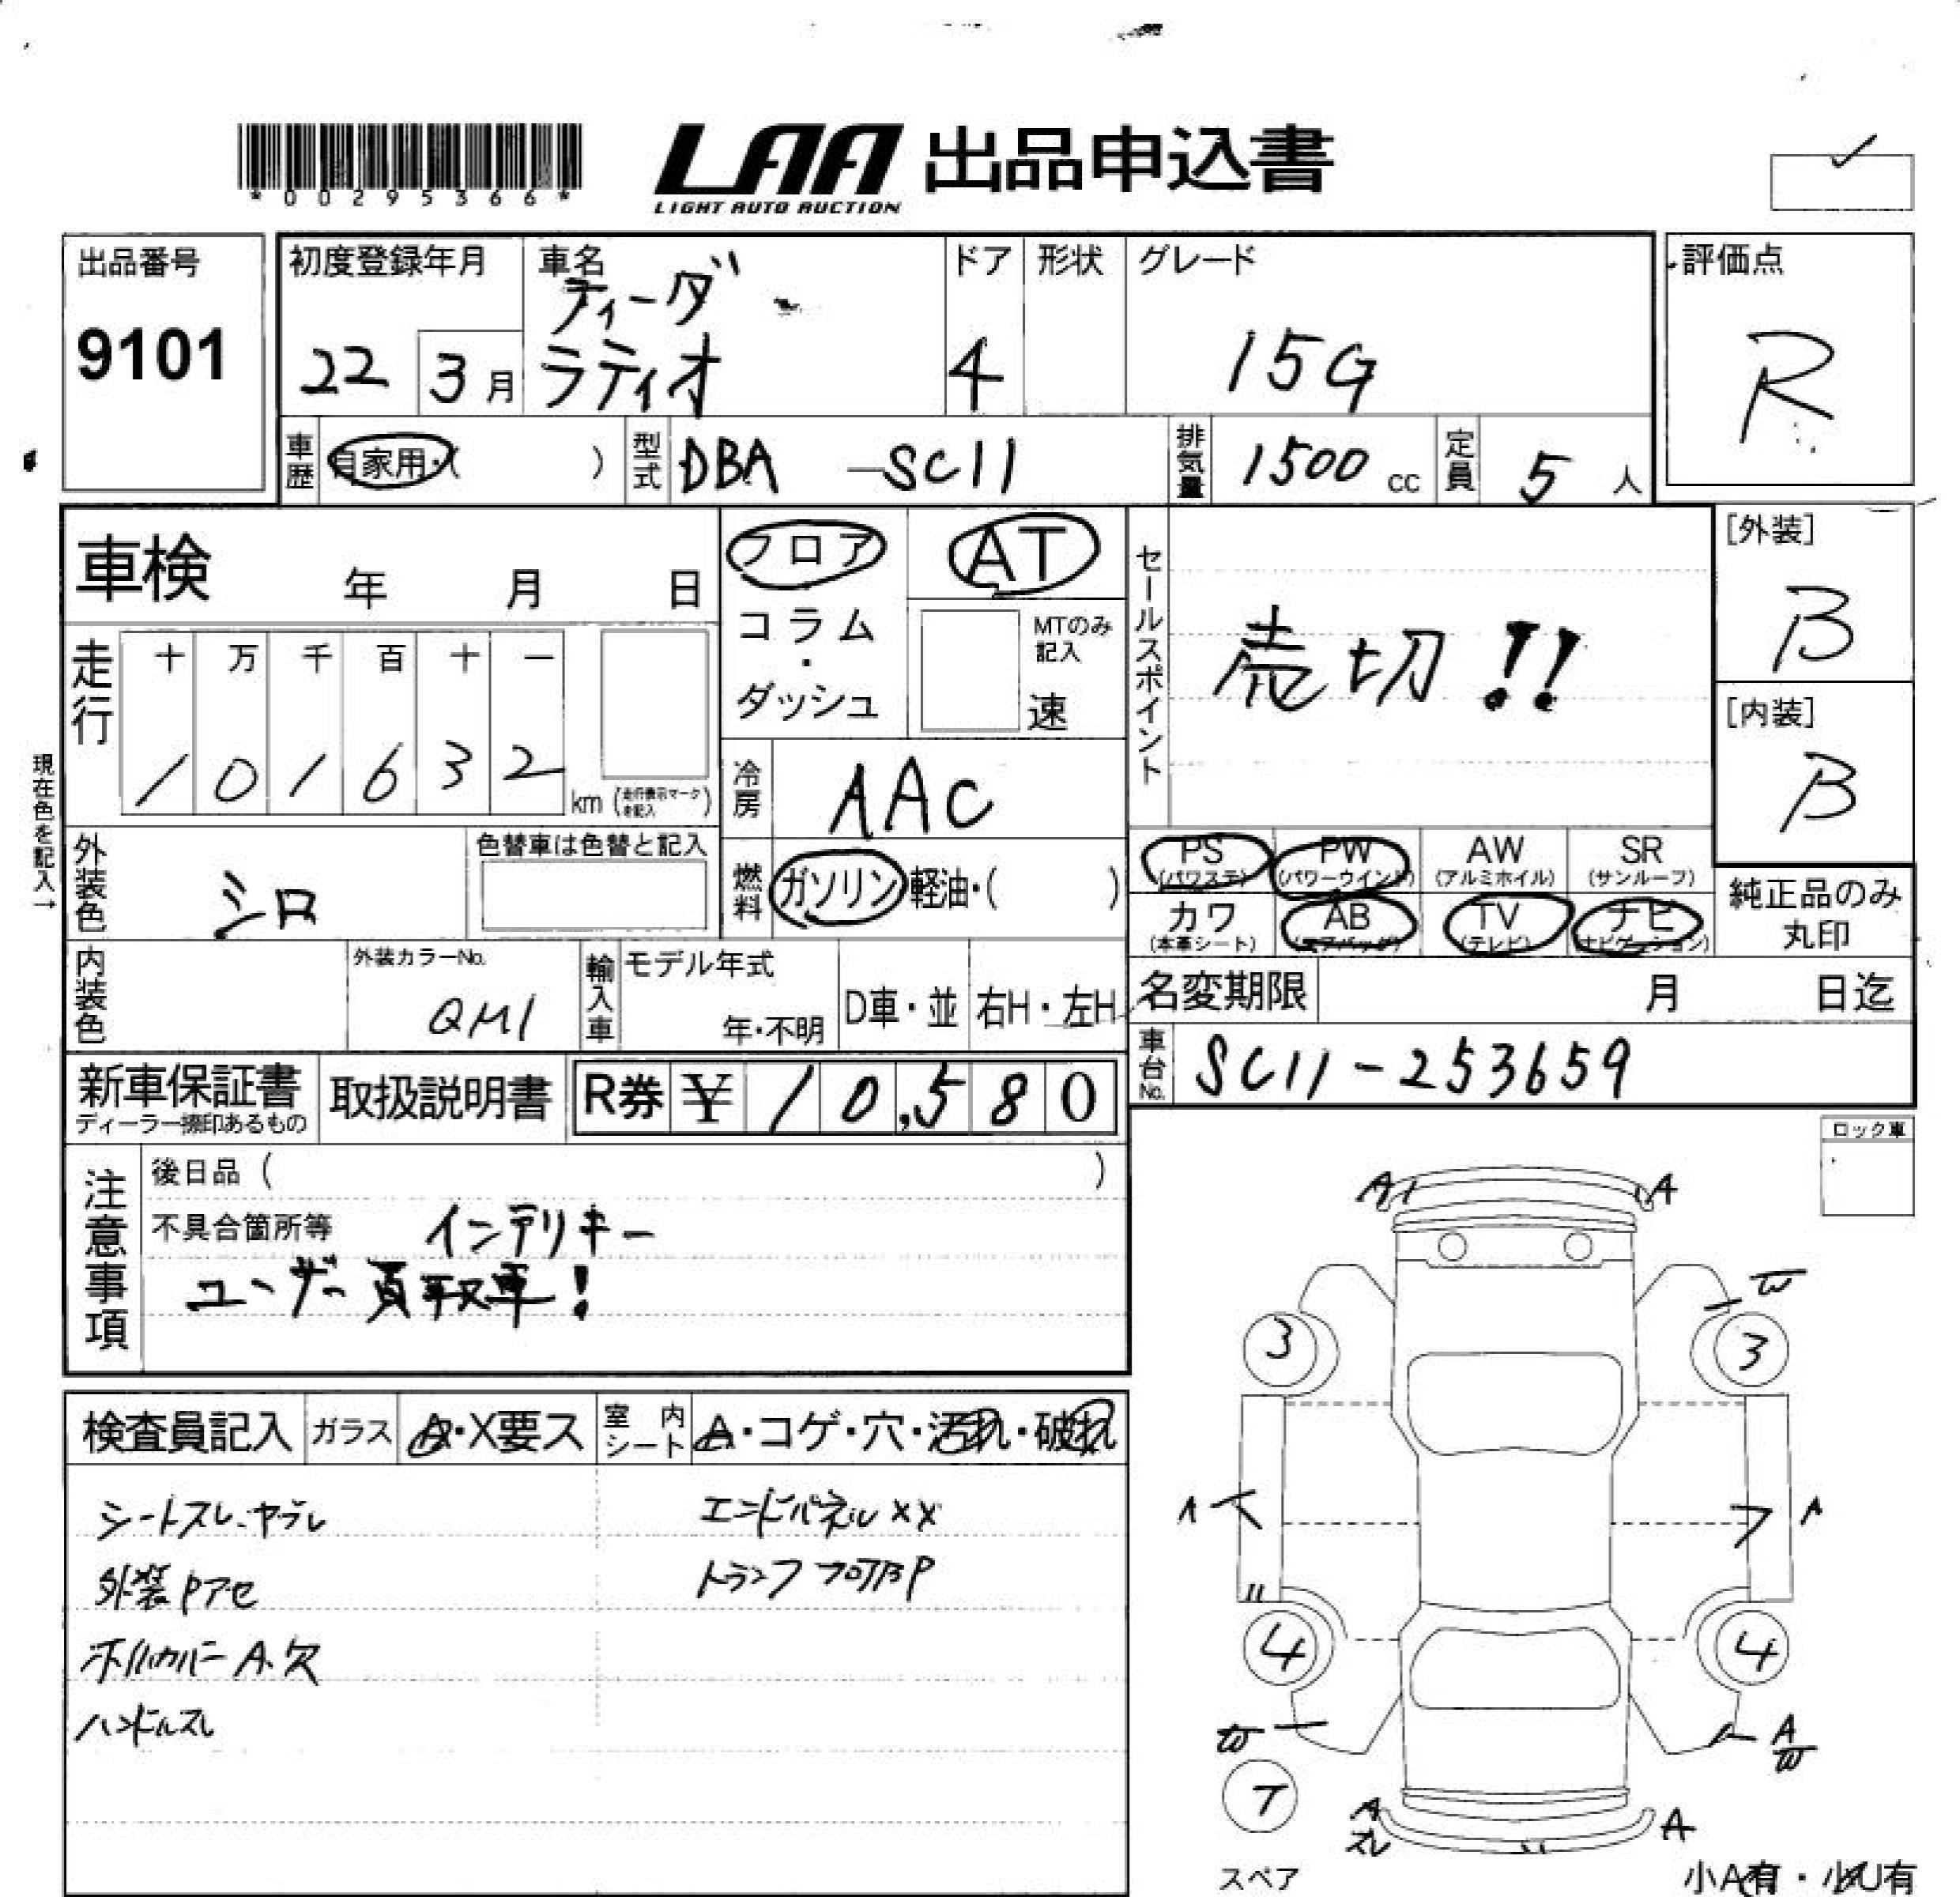 *00295366*
LAA 出品申込書
LIGHT AUTO AUCTION
出品番号
9101
初度登録年月
22 3月
車名
ティーダ
ラティオ
ドア
4
形状
グレード
15G
評価点
R
車歴 自家用・( )
型式 DBA -SC11
排気量 1500 cc
定員 5 人
車検 年 月 日
フロア
コラム
・
ダッシュ
AT
MTのみ
記入
速
セールスポイント
売切!!
[外装]
B
[内装]
B
走行
十 万 千 百 十 一
1 0 1 6 3 2 km
(走行表示マークを記入)
現在色を記入→
冷房 AAC
外装色 シロ
色替車は色替と記入
燃料 ガソリン・軽油・( )
PS (パワステ)
PW (パワーウインド)
AW (アルミホイル)
SR (サンルーフ)
カワ (本革シート)
AB (エアバッグ)
TV (テレビ)
ナビ (ナビゲーション)
純正品のみ
丸印
内装色
外装カラーNo.
QM1
輸入車
モデル年式
年・不明
D車・並
右H・左H
名変期限 月 日迄
車台No. SC11-253659
新車保証書
ディーラー捺印あるもの
取扱説明書
R券 ¥ 10,580
注意事項
後日品( )
不具合箇所等 インテリキー
ユーザー買取車!
ロック車
検査員記入
ガラス A・X要ス
室内シート A・コゲ・穴・汚れ・破れ
シートスレ・ヤブレ
エンドパネルXX
外装Pアセ
トランクフロアBP
ホイルカバーA.欠
ハンドルスレ
A A
W
3 3
A A
4 4
W A
W
T
A
スレ
A
スペア
小A有・小U有